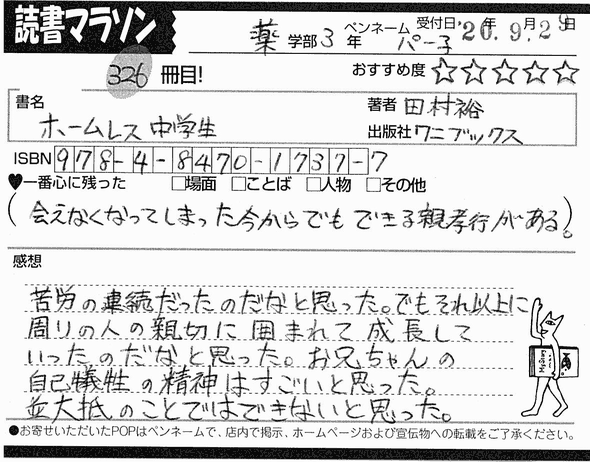 読書マラソン
薬 学部 3 年 ペンネーム パー子 受付日 '20年 9月 29日
326 冊目!
おすすめ度 ☆☆☆☆☆
書名 ホームレス中学生
著者 田村裕
出版社 ワニブックス
ISBN 978-4-8470-1737-7
♥一番心に残った □場面 □ことば □人物 □その他
(会えなくなってしまった今からでもできる親孝行がある。)
感想
苦労の連続だったのだなと思った。でもそれ以上に
周りの人の親切に囲まれて成長して
いったのだなと思った。お兄ちゃんの
自己犠牲の精神はすごいと思った。
並大抵のことではできないと思った。
●お寄せいただいたPOPはペンネームで、店内で掲示、ホームページおよび宣伝物への転載をご了承ください。